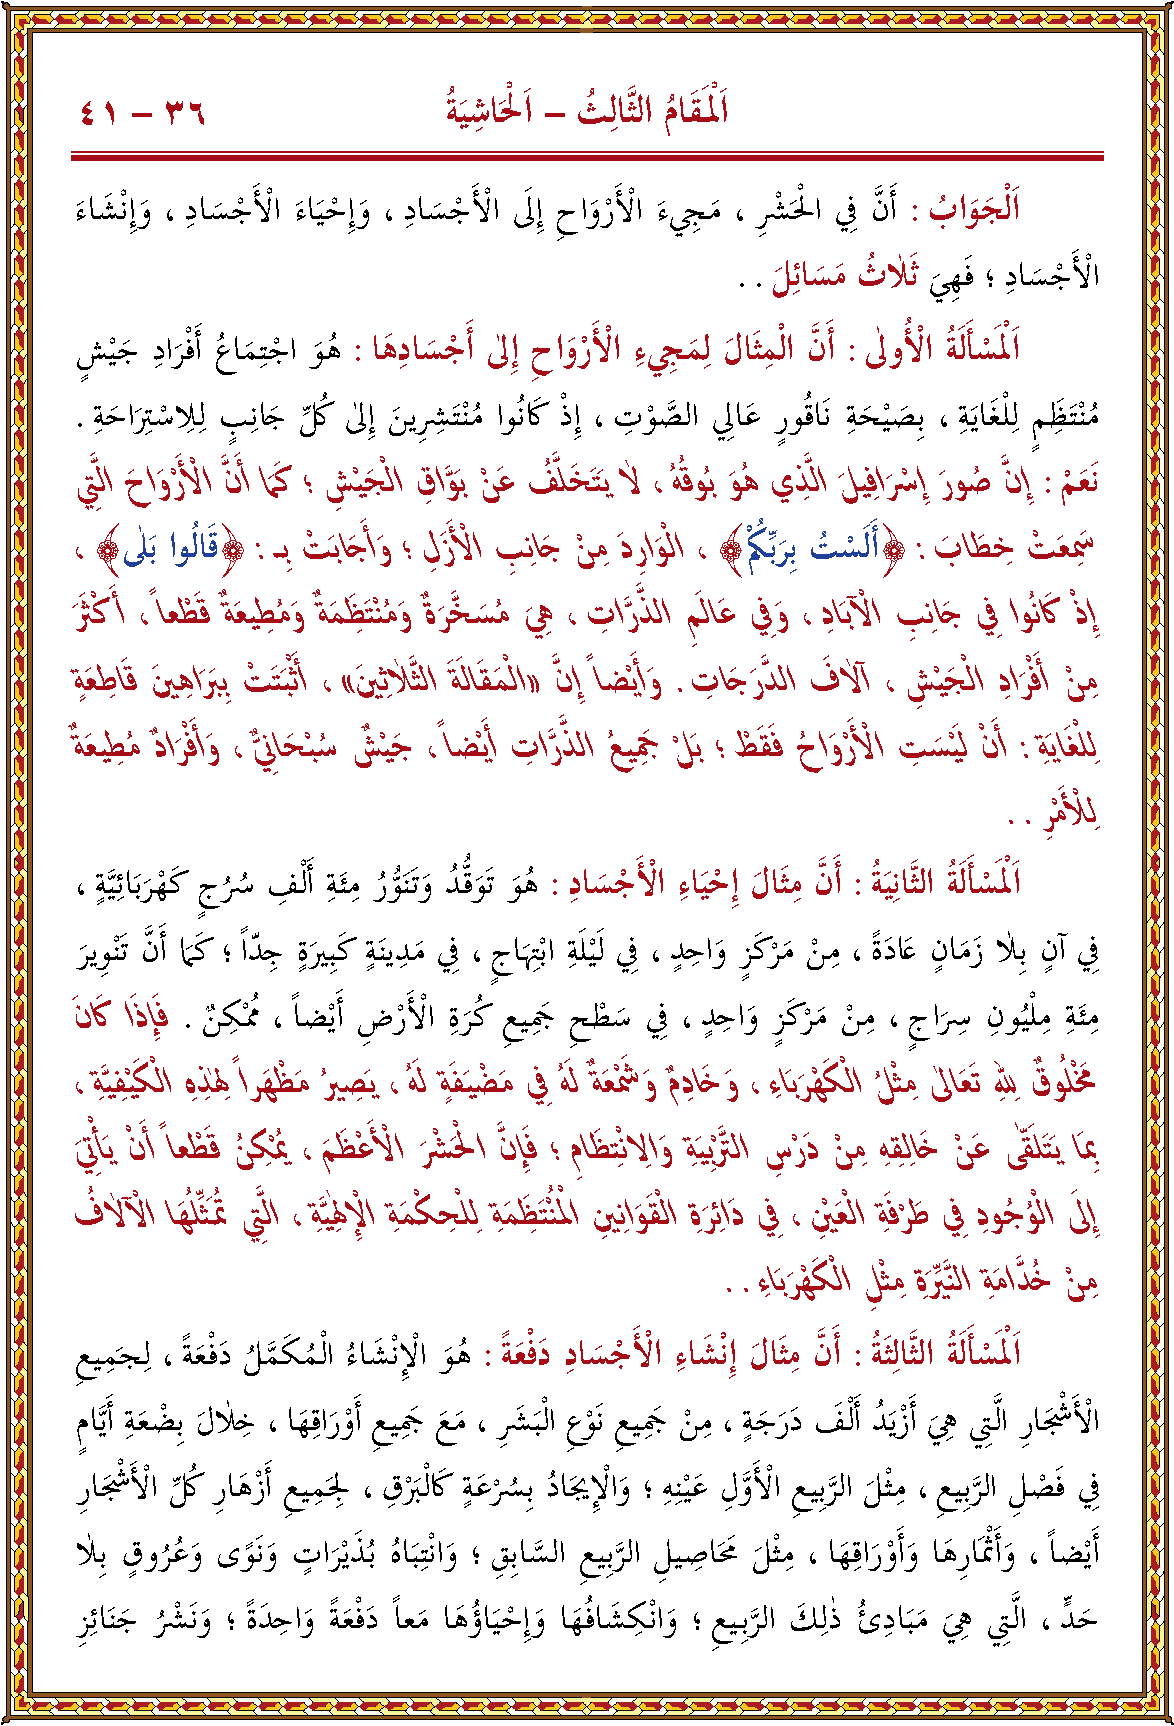 اَلْمَقَامُ الثَّالِثُ – اَلْحَاشِيَةُ ٣٦ – ٤١
اَلْجَوَابُ : أَنَّ فِي الْحَشْرِ ، مَجِيءَ الْأَرْوَاحِ إِلَى الْأَجْسَادِ ، وَإِحْيَاءَ الْأَجْسَادِ ، وَإِنْشَاءَ
الْأَجْسَادِ ؛ فَهِيَ ثَلَاثُ مَسَائِلَ . .
اَلْمَسْأَلَةُ الْأُولٰى : أَنَّ الْمِثَالَ لِمَجِيءِ الْأَرْوَاحِ إِلىٰ أَجْسَادِهَا : هُوَ اجْتِمَاعُ أَفْرَادِ جَيْشٍ
مُنْتَظِمٍ لِلْغَايَةِ ، بِصَيْحَةِ نَاقُورٍ عَالِي الصَّوْتِ ، إِذْ كَانُوا مُنْتَشِرِينَ إِلىٰ كُلِّ جَانِبٍ لِلِاسْتِرَاحَةِ .
نَعَمْ : إِنَّ صُورَ إِسْرَافِيلَ الَّذِي هُوَ بُوقُهُ ، لَا يَتَخَلَّفُ عَنْ بَوَّاقِ الْجَيْشِ ؛ كَمَا أَنَّ الْأَرْوَاحَ الَّتِي
سَمِعَتْ خِطَابَ : ﴿أَلَسْتُ بِرَبِّكُمْ﴾ ، الْوَارِدَ مِنْ جَانِبِ الْأَزَلِ ؛ وَأَجَابَتْ بِـ : ﴿قَالُوا بَلٰى﴾ ،
إِذْ كَانُوا فِي جَانِبِ الْآبَادِ ، وَفِي عَالَمِ الذَّرَّاتِ ، هِيَ مُسَخَّرَةٌ وَمُنْتَظِمَةٌ وَمُطِيعَةٌ قَطْعاً ، أَكْثَرَ
مِنْ أَفْرَادِ الْجَيْشِ ، آلَافَ الدَّرَجَاتِ . وَأَيْضاً إِنَّ «الْمَقَالَةَ الثَّلَاثِينَ» ، أَثْبَتَتْ بِبَرَاهِينَ قَاطِعَةٍ
لِلْغَايَةِ : أَنْ لَيْسَتِ الْأَرْوَاحُ فَقَطْ ؛ بَلْ جَمِيعُ الذَّرَّاتِ أَيْضاً ، جَيْشٌ سُبْحَانِيٌّ ، وَأَفْرَادٌ مُطِيعَةٌ
لِلْأَمْرِ . .
اَلْمَسْأَلَةُ الثَّانِيَةُ : أَنَّ مِثَالَ إِحْيَاءِ الْأَجْسَادِ : هُوَ تَوَقُّدُ وَتَنَوُّرُ مِئَةِ أَلْفِ سُرُجٍ كَهْرَبَائِيَّةٍ ،
فِي آنٍ بِلَا زَمَانٍ عَادَةً ، مِنْ مَرْكَزٍ وَاحِدٍ ، فِي لَيْلَةِ ابْتِهَاجٍ ، فِي مَدِينَةٍ كَبِيرَةٍ جِدّاً ؛ كَمَا أَنَّ تَنْوِيرَ
مِئَةِ مِلْيُونِ سِرَاجٍ ، مِنْ مَرْكَزٍ وَاحِدٍ ، فِي سَطْحِ جَمِيعِ كُرَةِ الْأَرْضِ أَيْضاً ، مُمْكِنٌ . فَإِذَا كَانَ
مَخْلُوقٌ لِلهِ تَعَالىٰ مِثْلُ الْكَهْرَبَاءِ ، وَخَادِمٌ وَشَمْعَةٌ لَهُ فِي مَضْيَفَةٍ لَهُ ، يَصِيرُ مَظْهَراً لِهٰذِهِ الْكَيْفِيَّةِ ،
بِمَا يَتَلَقّٰى عَنْ خَالِقِهِ مِنْ دَرْسِ التَّرْبِيَةِ وَالِانْتِظَامِ ؛ فَإِنَّ الْحَشْرَ الْأَعْظَمَ ، يُمْكِنُ قَطْعاً أَنْ يَأْتِيَ
إِلَى الْوُجُودِ فِي طَرْفَةِ الْعَيْنِ ، فِي دَائِرَةِ الْقَوَانِينِ الْمُنْتَظِمَةِ لِلْحِكْمَةِ الْإِلٰهِيَّةِ ، الَّتِي تُمَثِّلُهَا الْآلَافُ
مِنْ خُدَّامَةِ النَّيِّرَةِ مِثْلِ الْكَهْرَبَاءِ . .
اَلْمَسْأَلَةُ الثَّالِثَةُ : أَنَّ مِثَالَ إِنْشَاءِ الْأَجْسَادِ دَفْعَةً : هُوَ الْإِنْشَاءُ الْمُكَمَّلُ دَفْعَةً ، لِجَمِيعِ
الْأَشْجَارِ الَّتِي هِيَ أَزْيَدُ أَلْفَ دَرَجَةٍ ، مِنْ جَمِيعِ نَوْعِ الْبَشَرِ ، مَعَ جَمِيعِ أَوْرَاقِهَا ، خِلَالَ بِضْعَةِ أَيَّامٍ
فِي فَصْلِ الرَّبِيعِ ، مِثْلَ الرَّبِيعِ الْأَوَّلِ عَيْنِهِ ؛ وَالْإِيجَادُ بِسُرْعَةٍ كَالْبَرْقِ ، لِجَمِيعِ أَزْهَارِ كُلِّ الْأَشْجَارِ
أَيْضاً ، وَأَثْمَارِهَا وَأَوْرَاقِهَا ، مِثْلَ مَحَاصِيلِ الرَّبِيعِ السَّابِقِ ؛ وَانْتِبَاهُ بُذَيْرَاتٍ وَنَوًى وَعُرُوقٍ بِلَا
حَدٍّ ، الَّتِي هِيَ مَبَادِئُ ذٰلِكَ الرَّبِيعِ ؛ وَانْكِشَافُهَا وَإِحْيَاؤُهَا مَعاً دَفْعَةً وَاحِدَةً ؛ وَنَشْرُ جَنَائِزِ